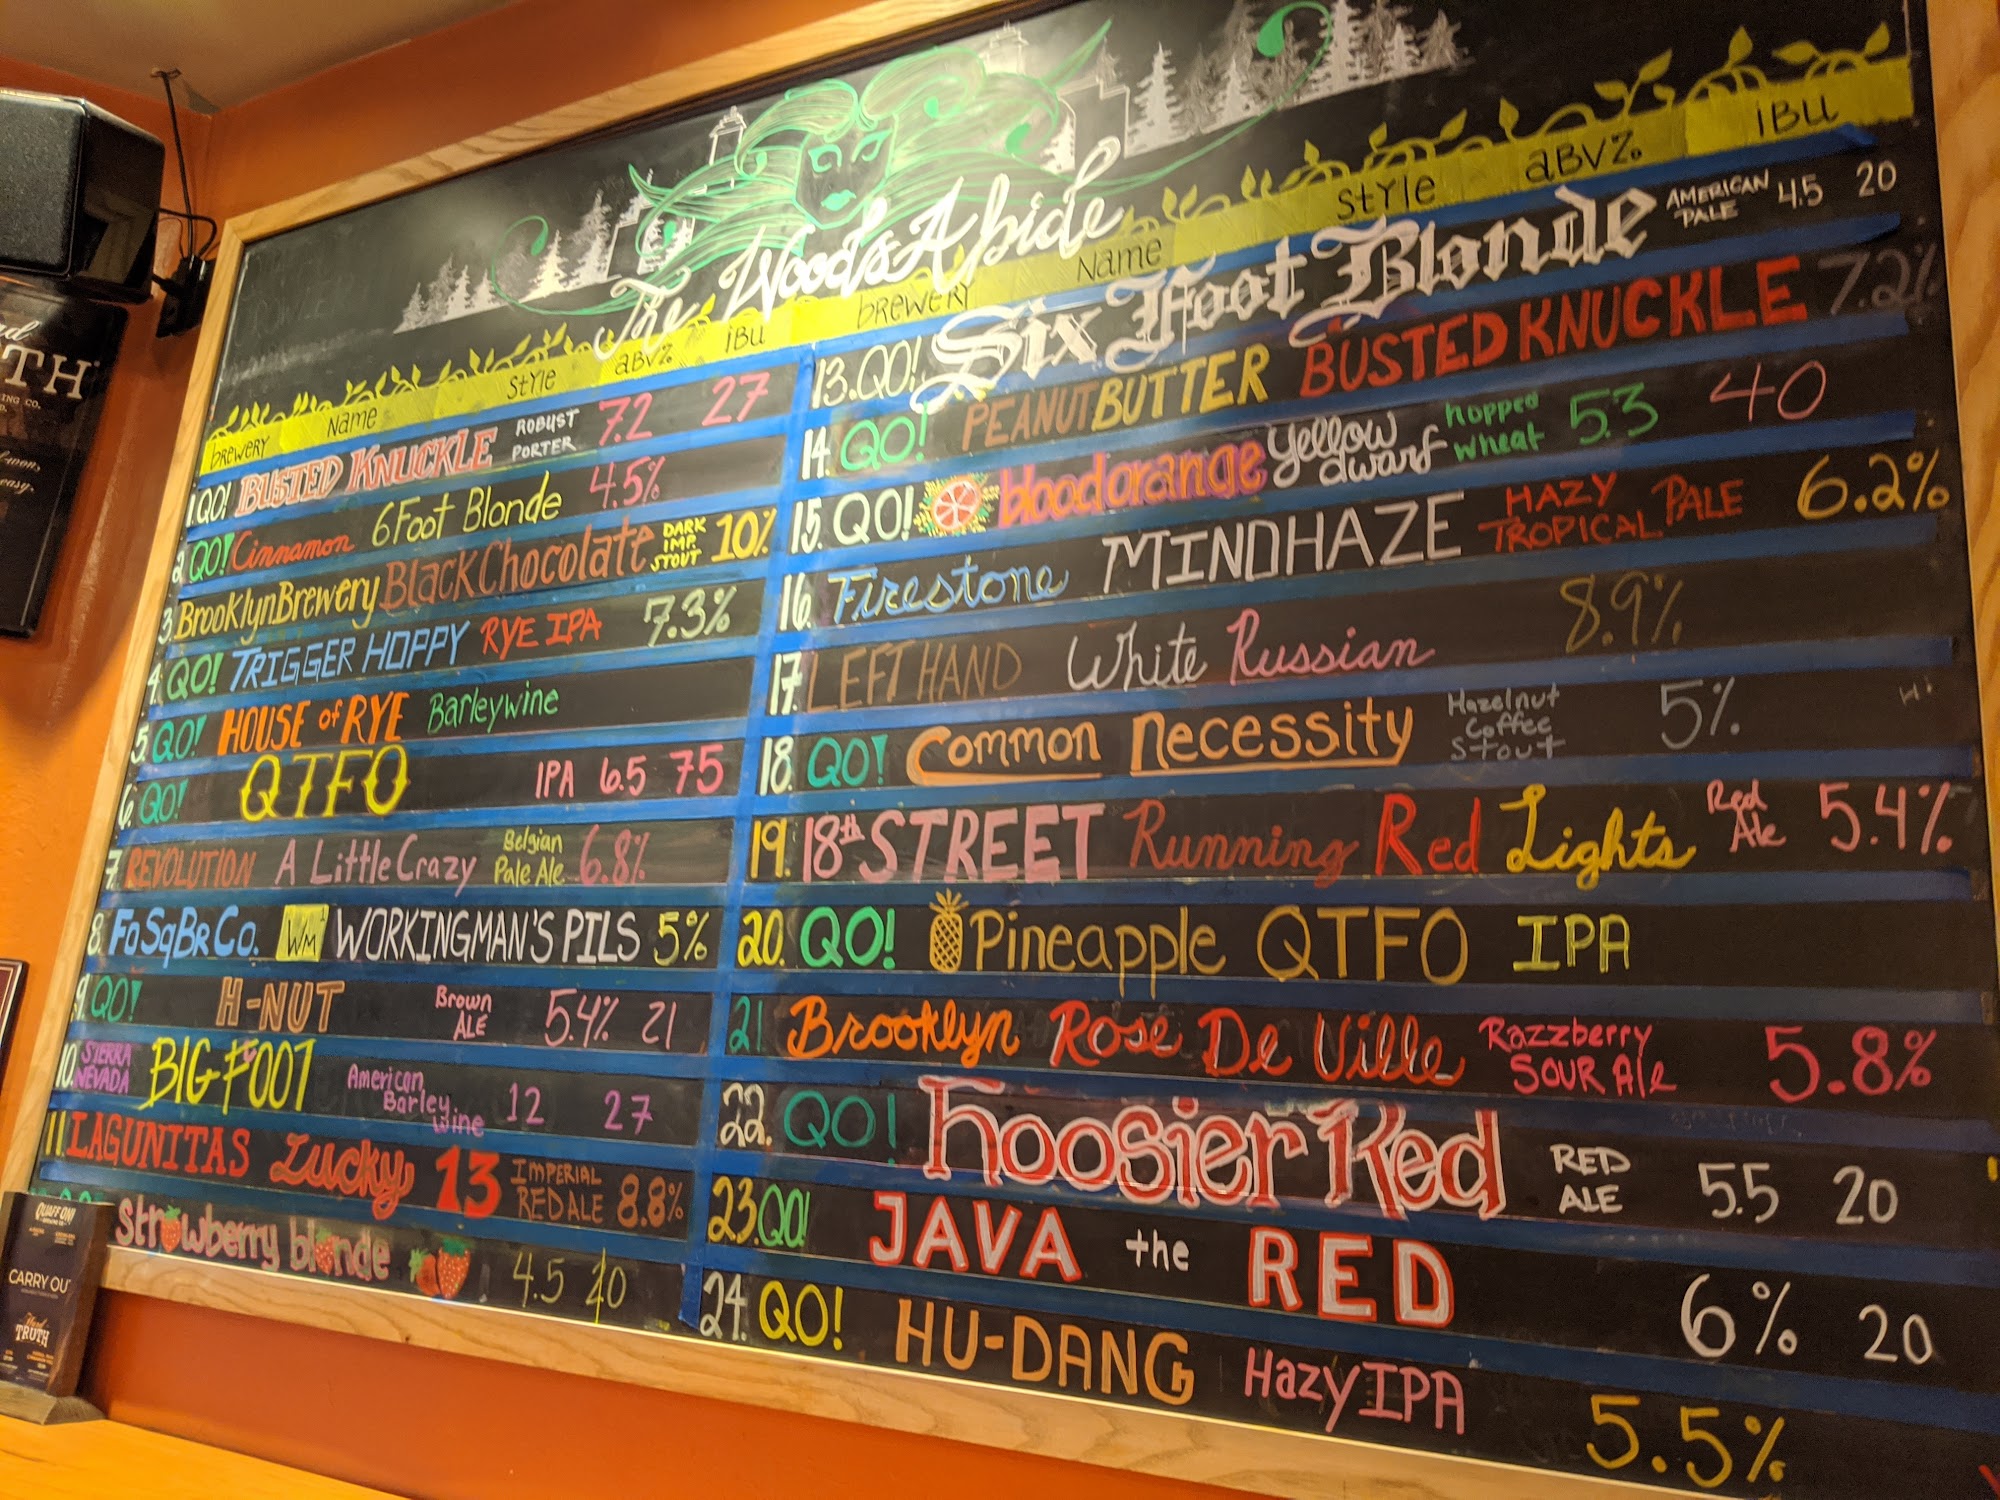 The WoodsAbide
brewery Name STYLE aBV% iBU
1. QO! BUSTED KNUCKLE ROBUST PORTER 7.2 27
2 QO! Cinnamon 6 Foot Blonde 4.5%
3. Brooklyn Brewery Black Chocolate DARK IMP. STOUT 10%
4. QO! TRIGGER HOPPY RYE IPA 7.3%
5. QO! HOUSE of RYE Barleywine
6. QO! QTFO IPA 6.5 75
7. REVOLUTION A Little Crazy Belgian Pale Ale 6.8%
8. FoSqBrCo. WM WORKINGMAN'S PILS 5%
9. QO! H-NUT Brown ALE 5.4% 21
10. SIERRA NEVADA BIGFOOT American Barley Wine 12 27
11. LAGUNITAS Lucky 13 IMPERIAL RED ALE 8.8%
strawberry blonde 4.5 20
brewery Name STYLE aBV% iBU
13. QO! Six Foot Blonde AMERICAN PALE 4.5 20
14. QO! PEANUT BUTTER BUSTED KNUCKLE 7.2%
15. QO! blood orange yellow dwarf hopped wheat 5.3 40
16. Firestone MINDHAZE HAZY TROPICAL PALE 6.2%
17. LEFT HAND White Russian 8.9%
18. QO! Common Necessity Hazelnut Coffee Stout 5%
19. 18th STREET Running Red Lights Red Ale 5.4%
20. QO! Pineapple QTFO IPA
21 Brooklyn Rose De Ville Razzberry SOUR Ale 5.8%
22. QO! Hoosier Red RED ALE 5.5 20
23. QO! JAVA the RED 6% 20
24. QO! HU-DANG Hazy IPA 5.5%
QUAFF ON!
CARRY OU
Hard
TRUTH
TH